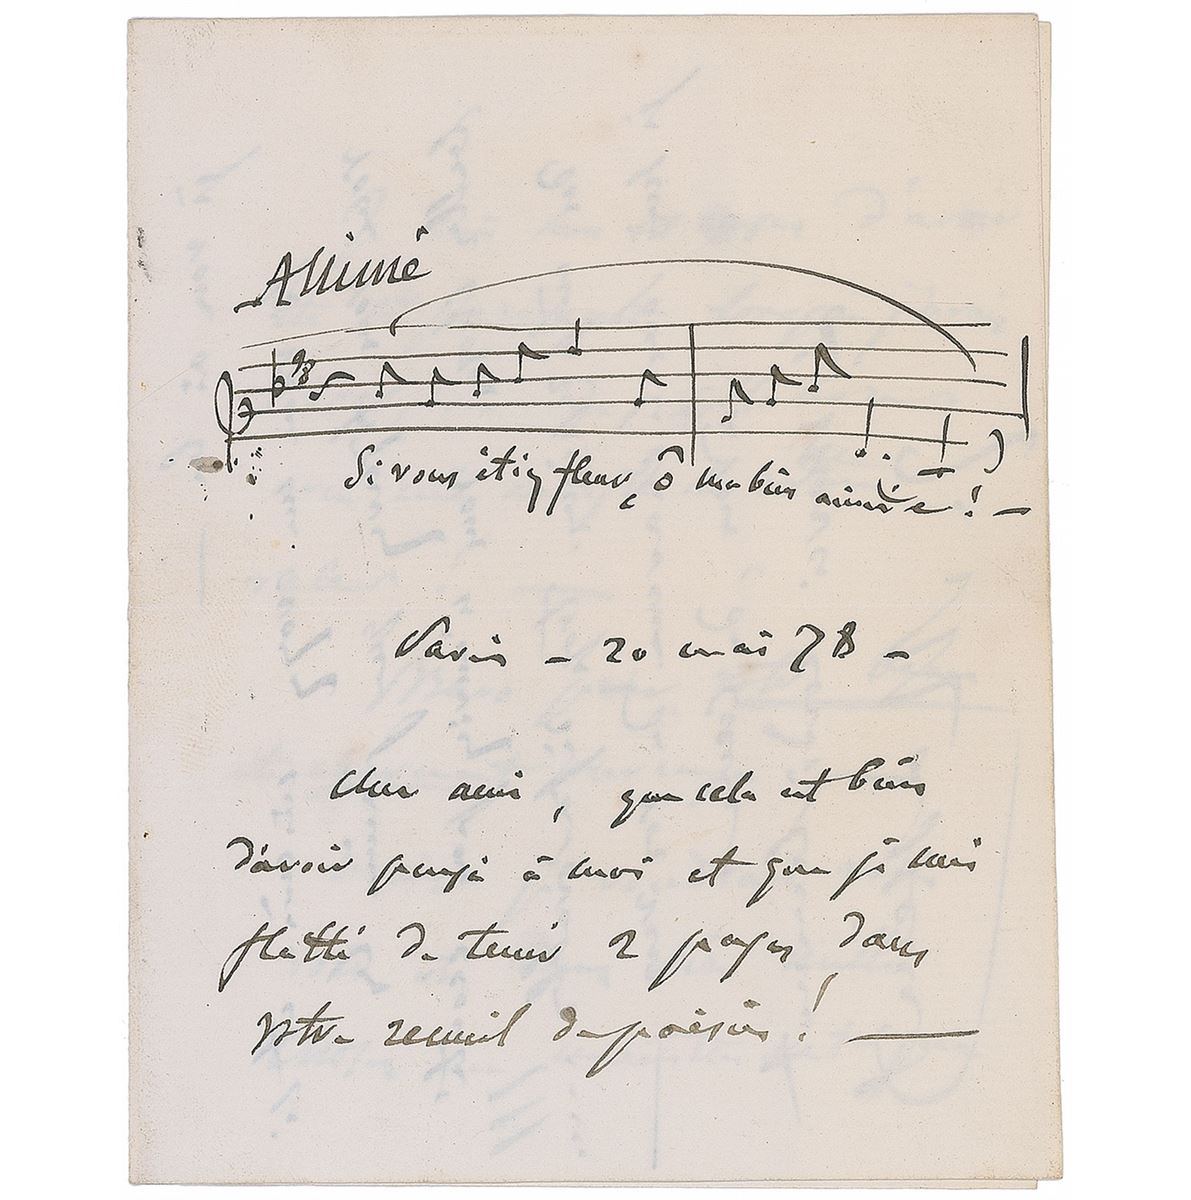 Animé
Si vous étiez fleur, ô ma bien aimée ! —
Paris — 20 mai 78 —
Cher ami, que cela est bien
d'avoir pensé à moi et que je suis
flatté de tenir 2 pages dans
votre recueil de poésies ! —